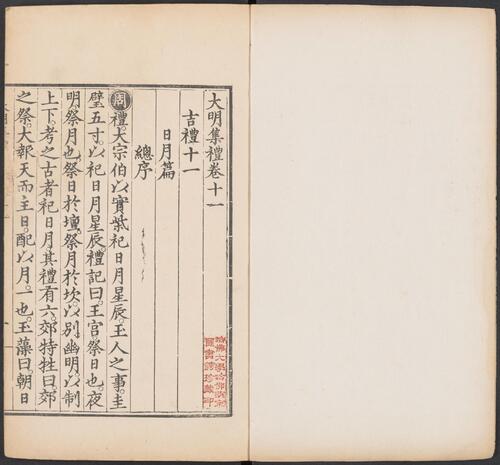 大明集禮卷十一
吉禮十一
日月篇
總序
周禮大宗伯以實柴祀日月星辰玉人之事圭
璧五寸以祀日月星辰禮記曰王宮祭日也夜
明祭月也祭日於壇祭月於坎以別幽明以制
上下考之古者祀日月其禮有六郊特牲曰郊
之祭大報天而主日配以月一也玉藻曰朝日